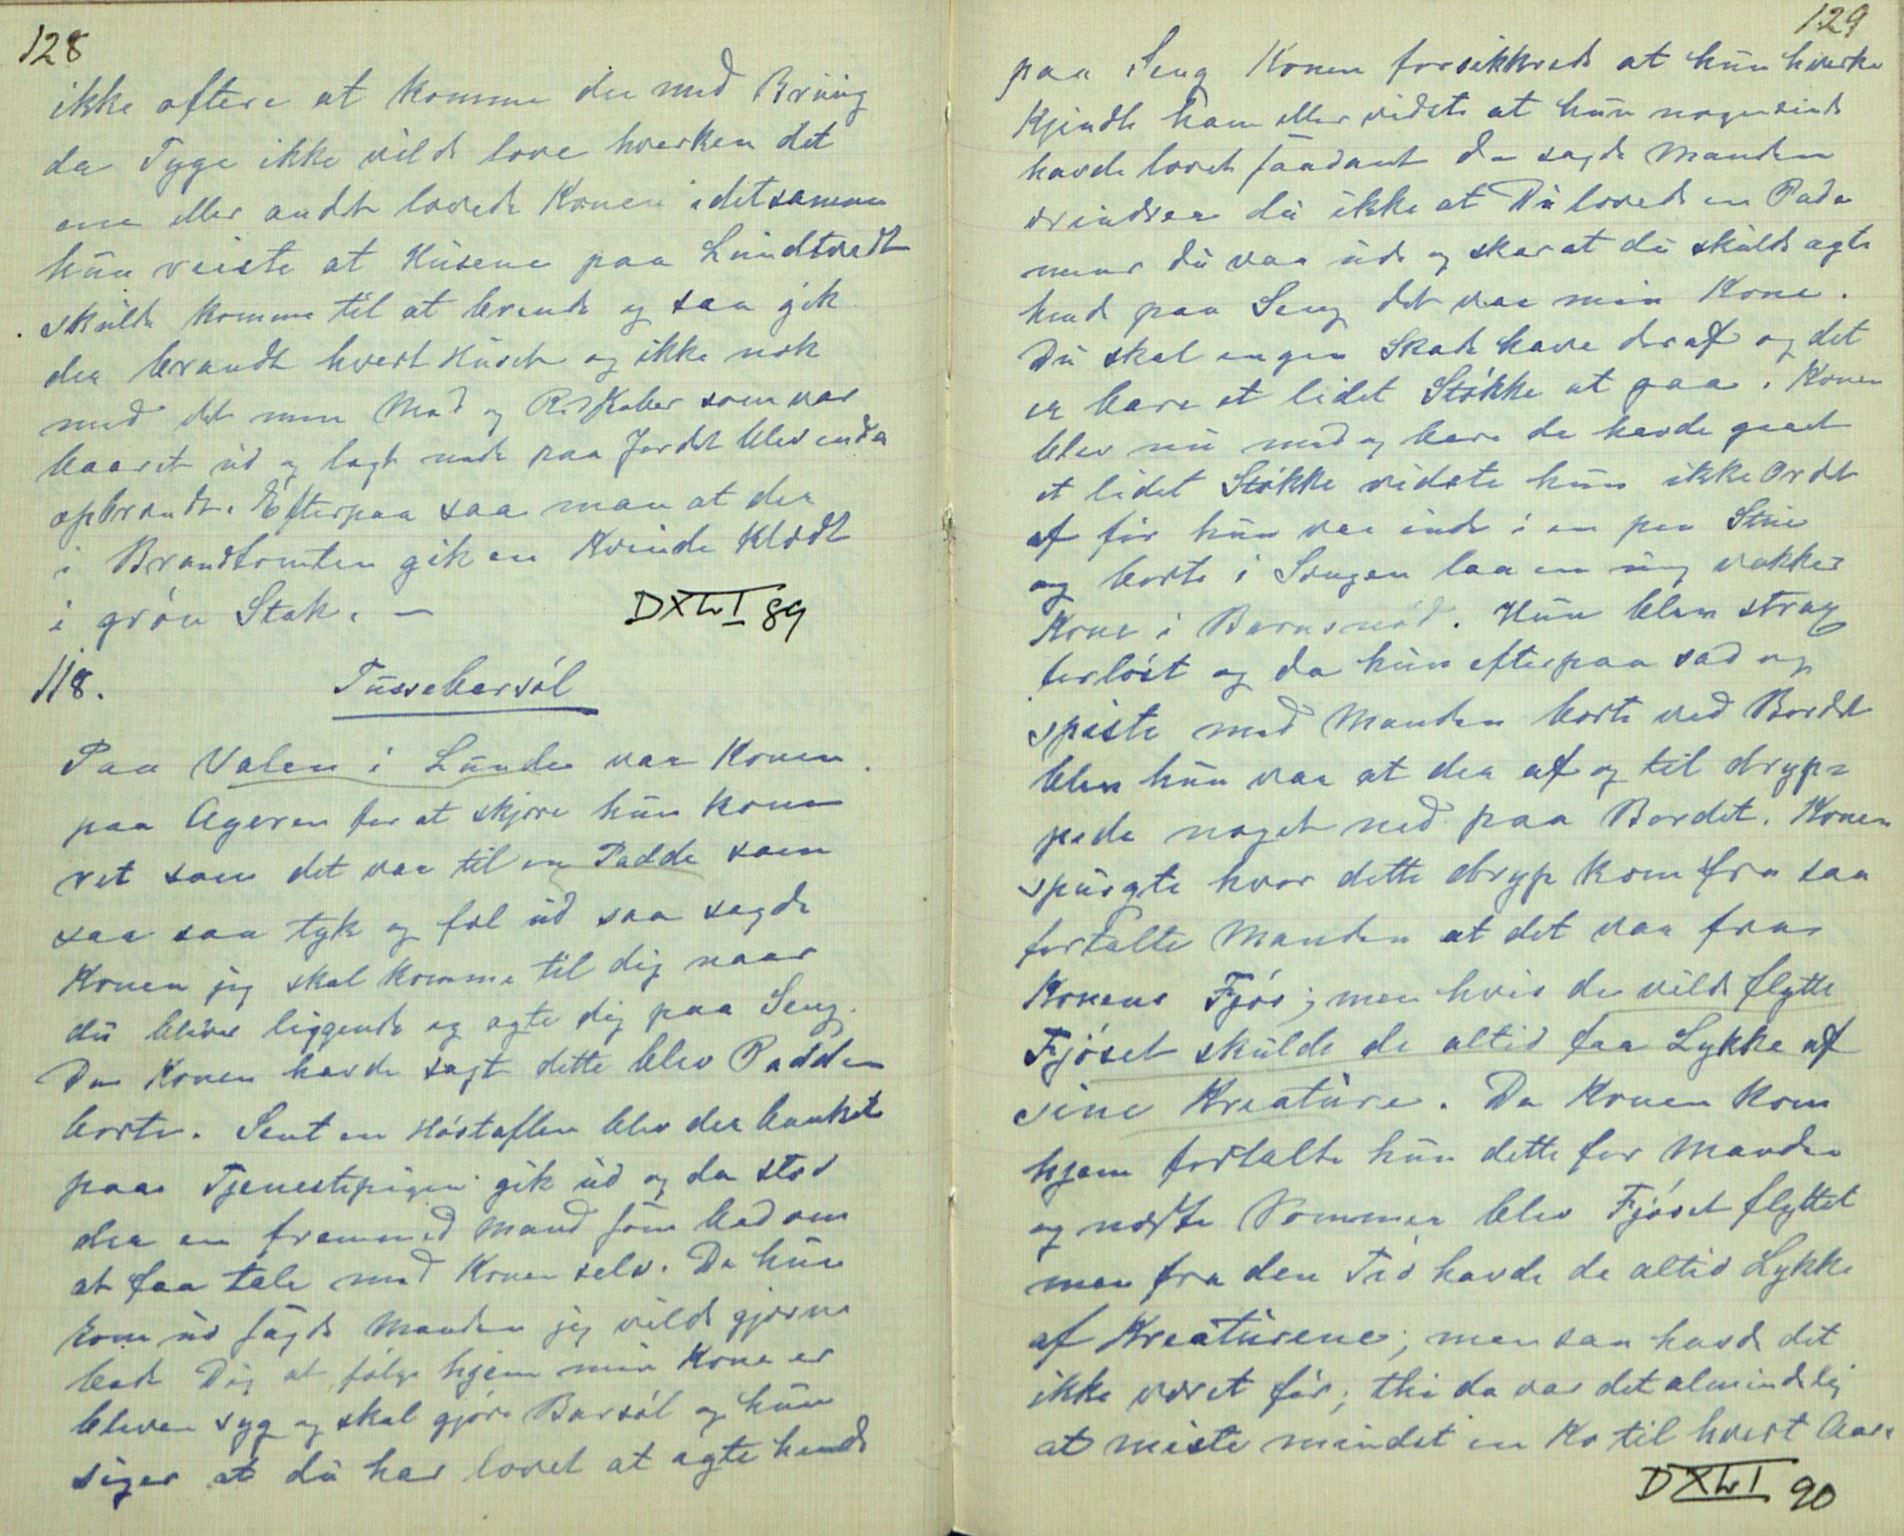 128
ikke oftere at komme der med Brüüg
da Tyge ikke vilde love hverken det
ene eller andt lovede Konen i detsamme
hün veiste at Hüsene paa Lündtvedt
skülde komme til at brende og saa gik
der brandt hvert Hüset og ikke nok
med det men Mad og Redskaber som var
baaret üd og lagt nede paa Jordet blev enda
opbrendt. Efterpaa saa man at der
i Brandtomten gik en Kvinde klædt
i grön Stak. —
DXLI 89
118.
Tüssebarsöl
Paa Valen i Lünde var Konen
paa Ageren for at skjære hün kom
ret som det var til en Padde som
saa saa tyk og fæl üd saa sagde
Konen jeg skal komme til dig naar
dü bliver liggende og agte dig paa Seng.
Da Konen havde sagt dette blev Padden
borte. Sent en Höstaften blev der banket
paa Tjenestepigen gik üd og da stod
der en fremmed Mand som bad om
at faa tale med Konen selv. Da hün
kom üd sagde Manden jeg vilde gjerne
bede Dig at følge hjem min Kone er
bleven syg og skal gjöre Barsöl og hün
siger at dü har lovet at agte hende
129
paa Seng Konen forsikkrede at hün hverke
kjendte ham eller vidste at hün nogensinde
havde lovet saadant da sagde Manden
erindrer dü ikke at Dü lovede en Pade
naar dü var üde og skar at dü skülde agte
hende paa Seng det var min Kone.
Dü skal ingen Skade have deraf og det
er bare et lidet Stökke at gaa. Konen
blev nü med og bare de havde gaaet
et lidet Stökke vidste hün ikke Ordet
af för hün var inde i en pen Stüe
og borte i Sengen laa en üng vakker
Kone i Barnsnöd. Hün blev strax
forlöst og da hün efterpaa sad og
spiste med Manden borte ved Bordet
blev hün var at der af og til dryp=
pede noget ned paa Bordet. Konen
spürgte hvor dette dryp kom fra saa
fortalte Manden at det var fra
Konens Fjös; men hvis de vilde flytte
Fjöset skülde de altid faa Lykke af
sine Kreatüre. Da Konen kom
hjem fortalte hün dette for Manden
og næste Sommer blev Fjöset flyttet
men fra den Tid havde de altid Lykke
af Kreatürene; men saa havde det
ikke været för, thi da var det almindelig
at miste mindst en Ko til hvert Aar.
DXLI 90